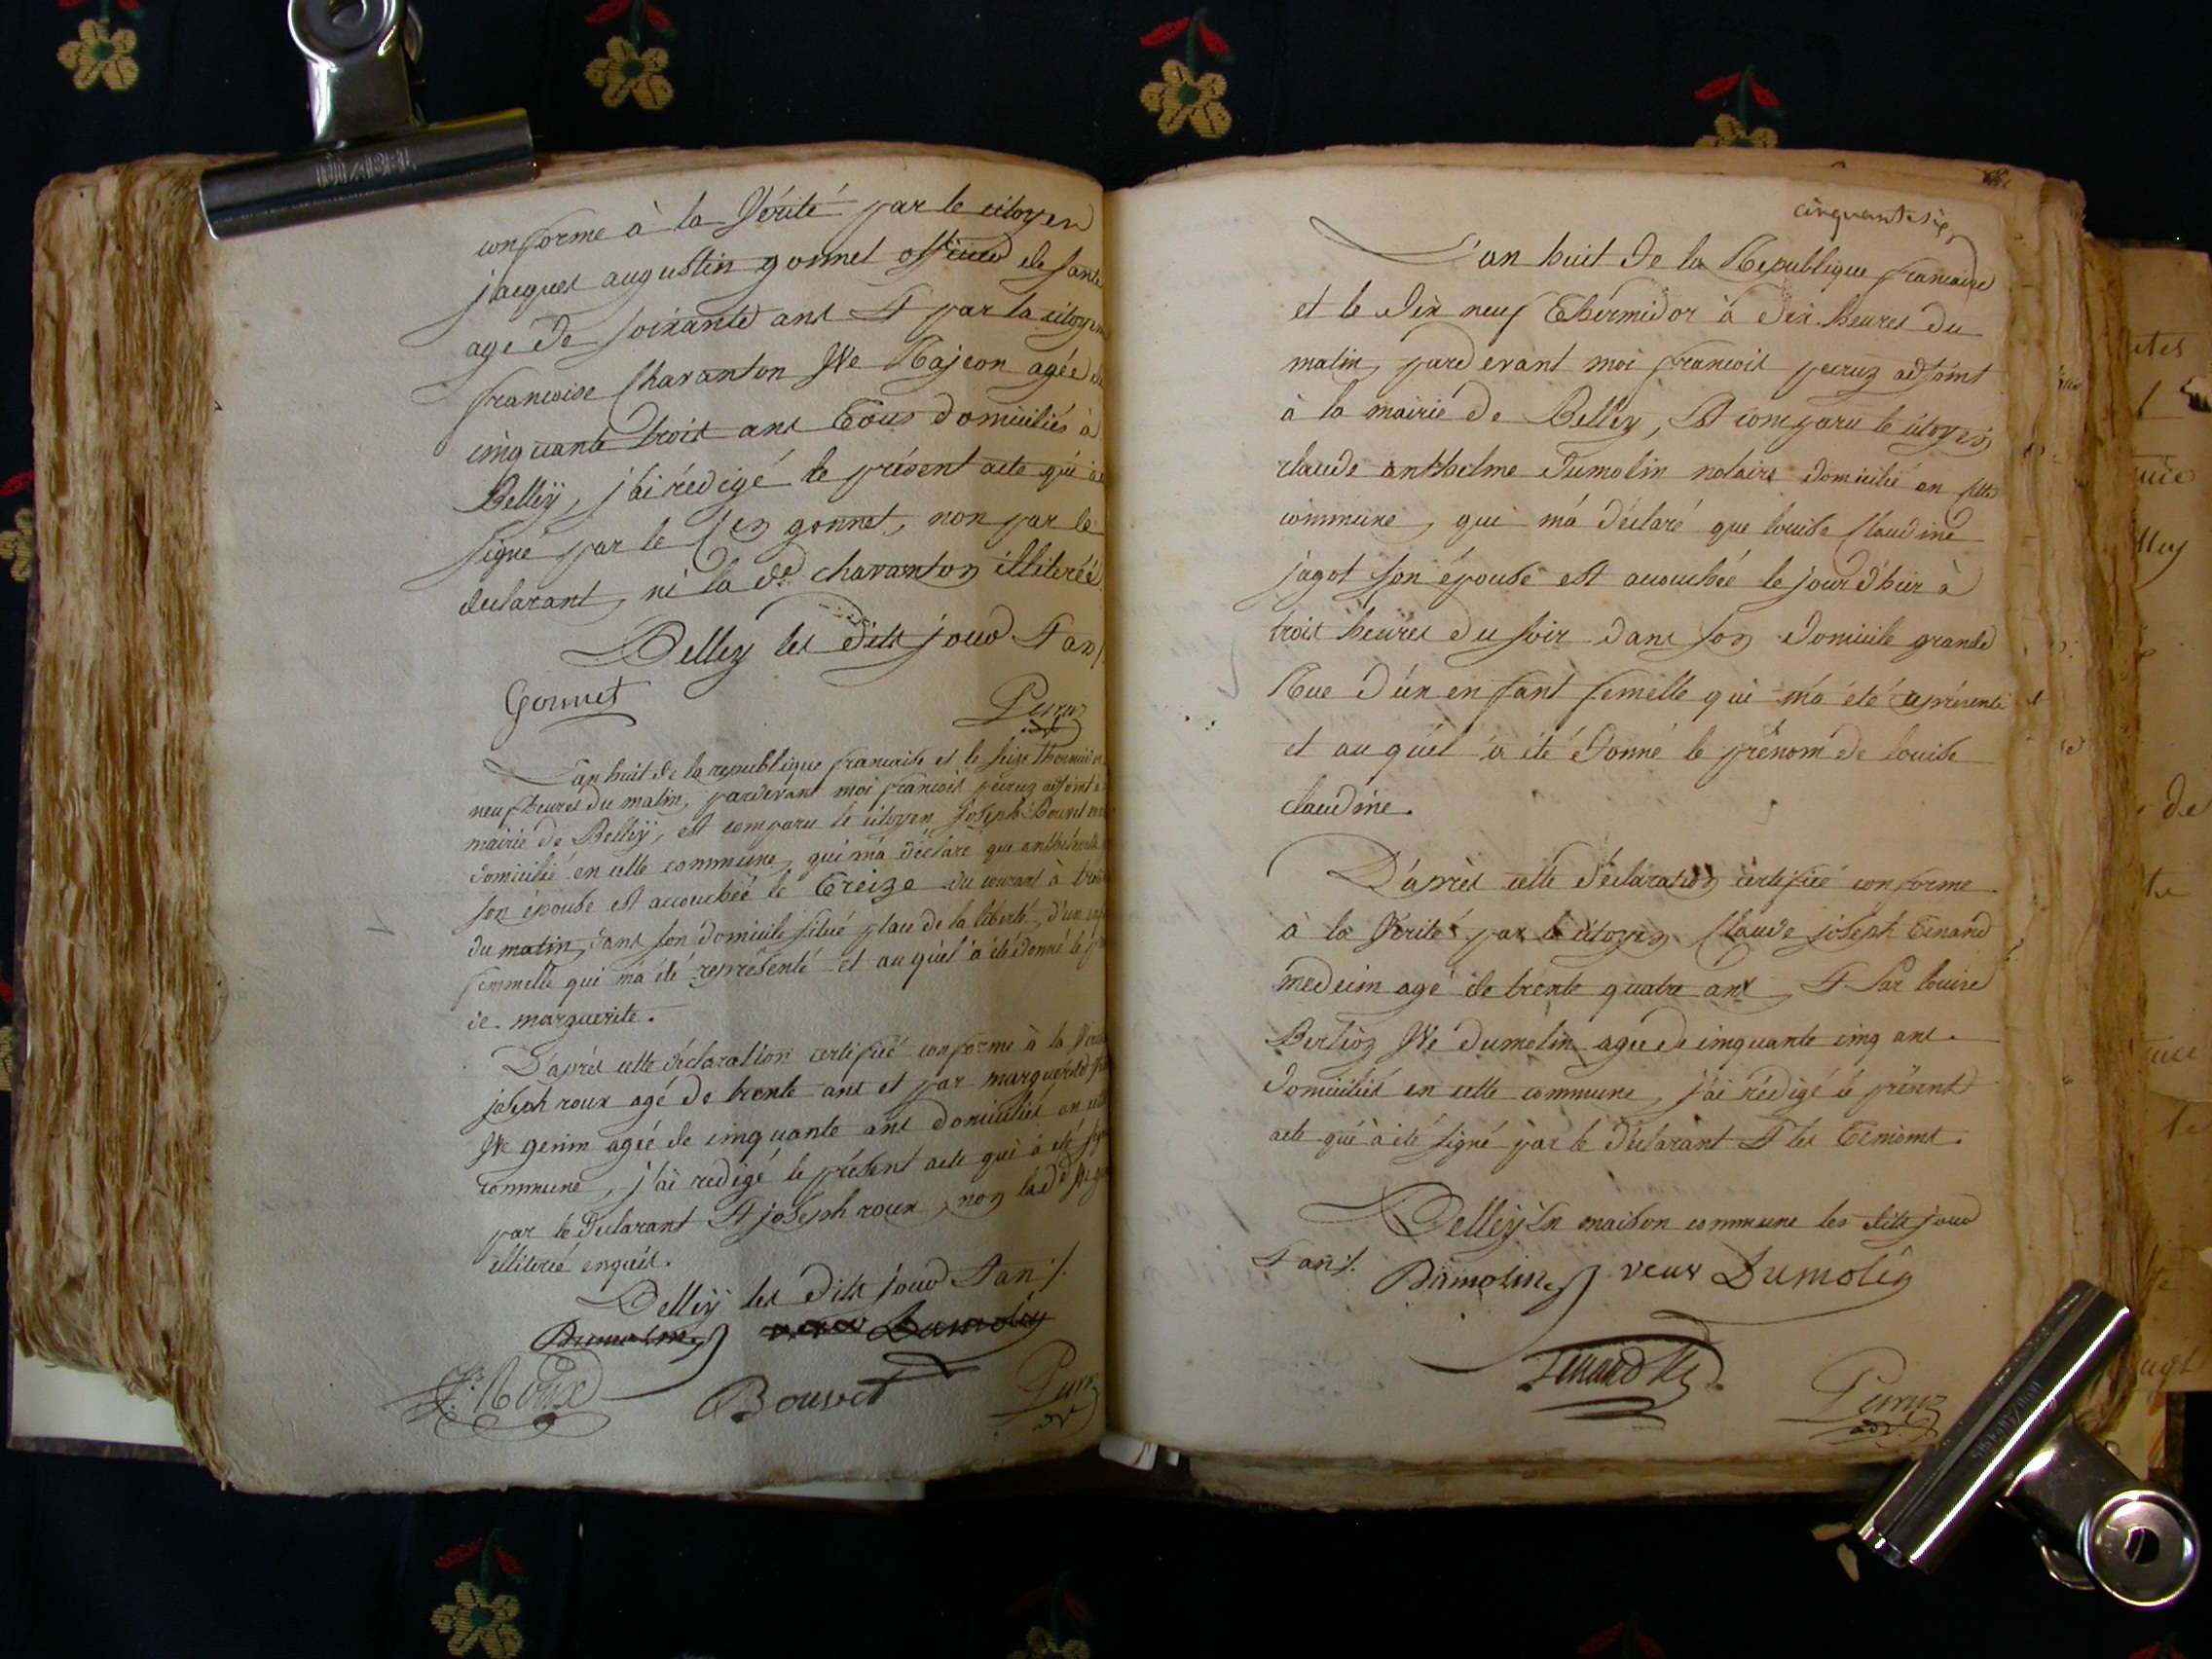 conforme à la Vérité par le citoyen
jacques augustin gonnet officier de santé
agé de soixante ans & par la citoyen
francoise Charanton Ve Pajeon agée de
cinquante trois ans Tous domiciliés à
Belleÿ, j'ai rédigé le présent acte qui à
signé par le Cen gonnet, non par le
declarant, ni la de. charanton illiterée
Belley les dits jour & an
Gonnet
Peruz
L'an huit de la republique francaise et le seize thermidor
neuf heures du matin, pardevant moi francois peruz adjoint à
mairie de Belleÿ, est comparu le citoyen joseph Bouvet
domicilié en cette commune, qui m'a déclaré que
son épouse est accouchée le Treize du courant à
du matin, dans son domicile situé place de la liberté, d'un
femmelle qui m'a été représenté et auquel à été donné le
de marguerite.
D'après cette déclaration certifiée conforme à la
joseph roux agé de trente ans et par marguerite
Ve genin agée de cinquante ans domiciliés en
commune, j'ai redigé le présent acte qui à été
par le Déclarant & joseph roux, non lad
illiteré enquis.
Belleÿ les dits jour & an
Dumolin veuv Dumolin
Roux
Bouvet
Peruz
cinquantesix
L'an huit de la Republique francaise
et le dix neuf Thermidor à dix heures du
matin, pardevant moi francois peruz adjoint
à la mairie de Belley, Est comparu le citoyen
claude anthelme Dumolin notaire domicilié en cette
commune, qui m'a déclaré que louise Claudine
jagot son épouse est accouchée le jour d'hier à
trois heures du soir dans son domicile grande
Rue d'un enfant femelle qui m'a été représenté
et auquel à été donné le prénom de louise
claudine.
D'après cette déclaration certifiée conforme
à la Verité par le citoyen Claude joseph Tenand
medecin agé de trente quatre ans & Par louise
Berlioz Ve Dumolin agée de cinquante cinq ans.
domiciliés en cette commune, j'ai rédigé le présent
acte qui à été signé par le Déclarant & les Témoins.
Belley En maison commune les dits jour
& an
Dumolin veuv Dumolin
Tenand
Peruz